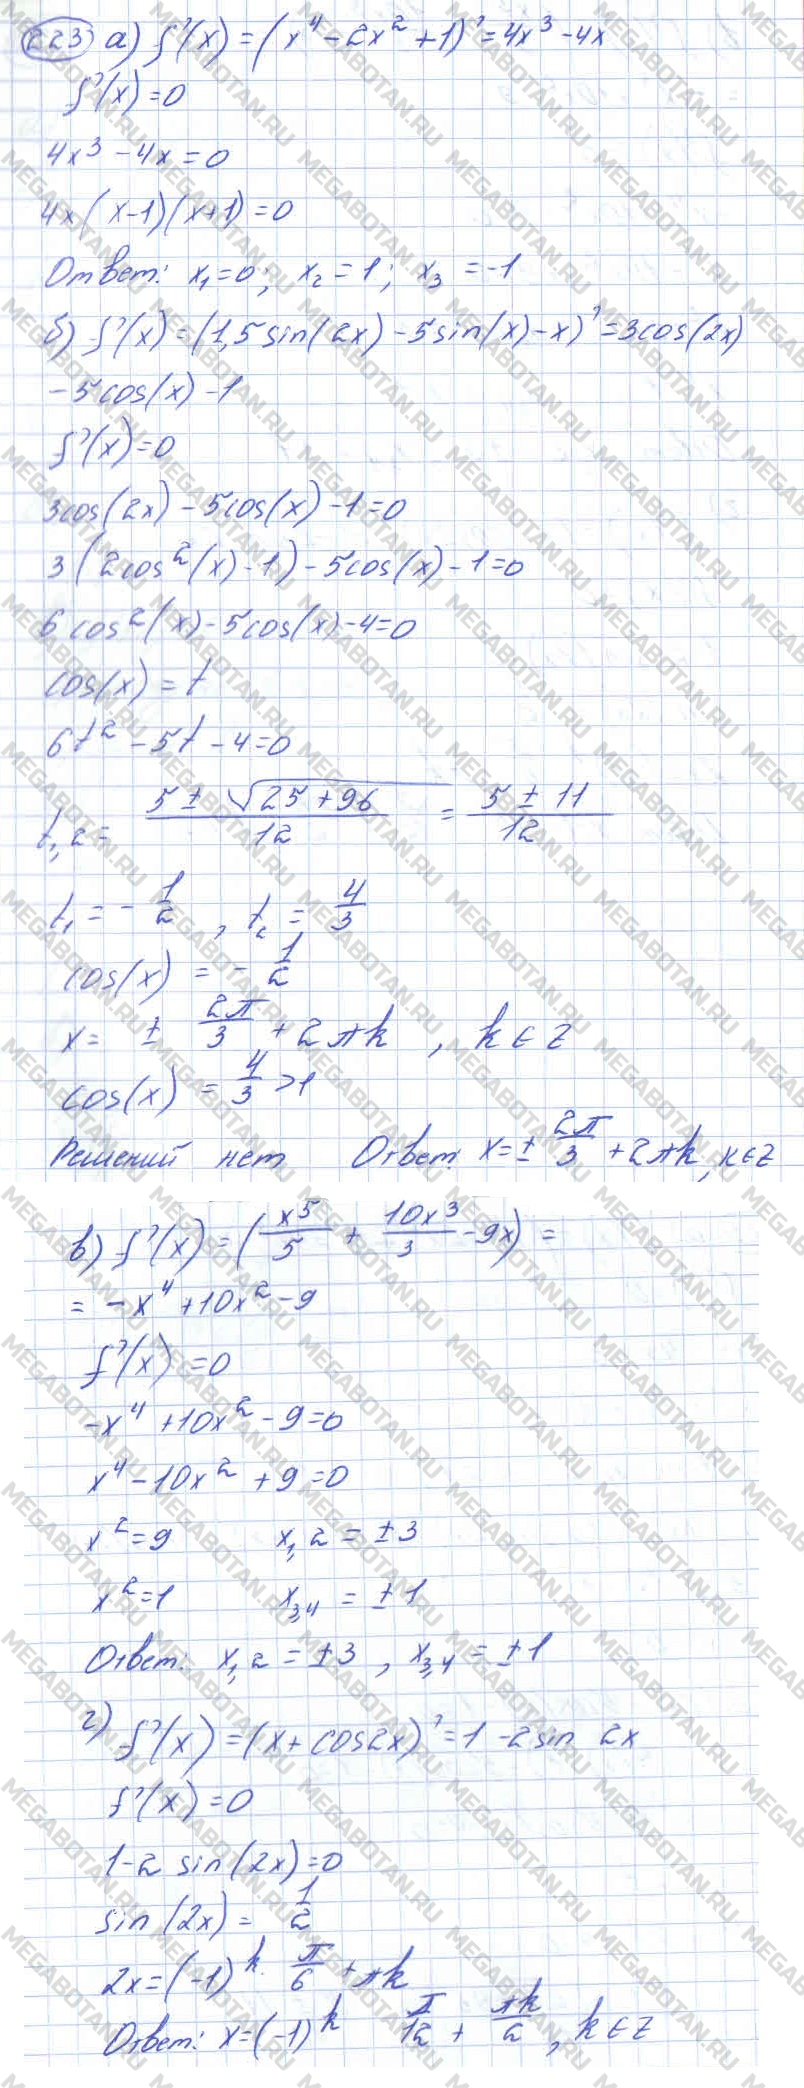 223 а) f'(x) = (x⁴ - 2x² + 1)' = 4x³ - 4x
f'(x) = 0
4x³ - 4x = 0
4x(x-1)(x+1) = 0
Ответ: x₁ = 0; x₂ = 1; x₃ = -1
б) f'(x) = (1,5 sin(2x) - 5 sin(x) - x)' = 3cos(2x)
- 5cos(x) - 1
f'(x) = 0
3cos(2x) - 5cos(x) - 1 = 0
3(2cos²(x) - 1) - 5cos(x) - 1 = 0
6cos²(x) - 5cos(x) - 4 = 0
cos(x) = t
6t² - 5t - 4 = 0
t₁,₂ = (5 ± √(25 + 96))/12 = (5 ± 11)/12
t₁ = -1/2, t₂ = 4/3
cos(x) = -1/2
x = ± 2π/3 + 2πk, k ∈ Z
cos(x) = 4/3 > 1
Решений нет Ответ: x = ± 2π/3 + 2πk, k ∈ Z
в) f'(x) = (x⁵/5 + 10x³/3 - 9x) =
= -x⁴ + 10x² - 9
f'(x) = 0
-x⁴ + 10x² - 9 = 0
x⁴ - 10x² + 9 = 0
x² = 9 x₁,₂ = ±3
x² = 1 x₃,₄ = ±1
Ответ: x₁,₂ = ±3, x₃,₄ = ±1
г) f'(x) = (x + cos2x)' = 1 - 2sin 2x
f'(x) = 0
1 - 2 sin(2x) = 0
sin(2x) = 1/2
2x = (-1)ᵏ · π/6 + πk
Ответ: x = (-1)ᵏ π/12 + πk/2, k ∈ Z
MEGABOTAN.RU